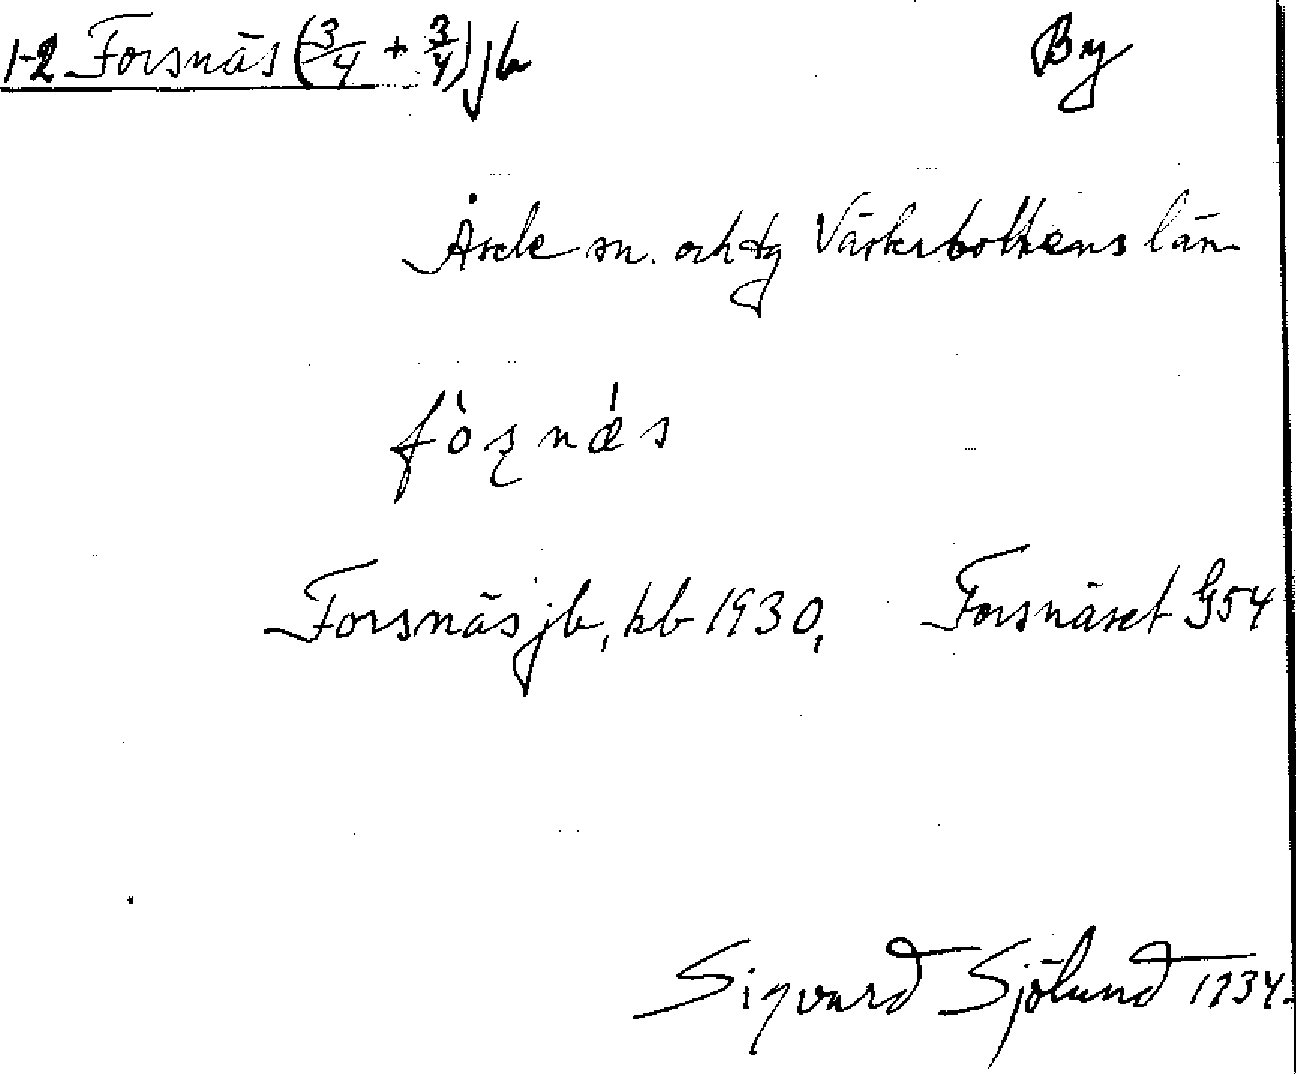 1-2 Forsnäs (3/4 + 3/4) jb By
Åsele sn. och tg Västerbottens län
fòʂnǽs
Forsnäs jb, kb 1930, Forsnäset G54
Sigvard Sjölund 1934.